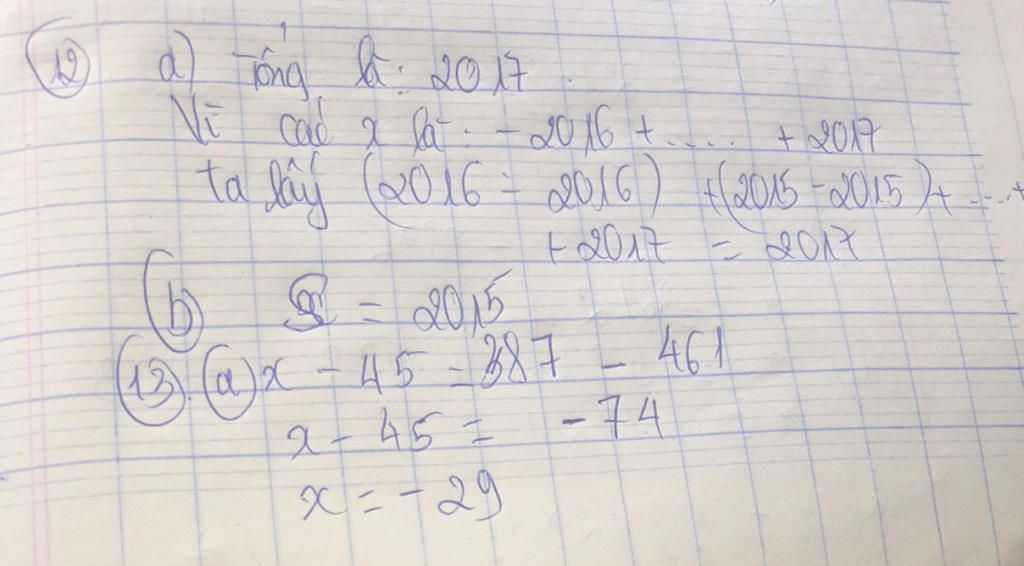 12 a) Tổng là: 2017.
Vì các x là: -2016 + ..... + 2017
ta lấy (2016 - 2016) + (2015 - 2015) + ..... +
+ 2017 = 2017
b) S = 2015
13. a) x - 45 = 387 - 461
x - 45 = -74
x = -29